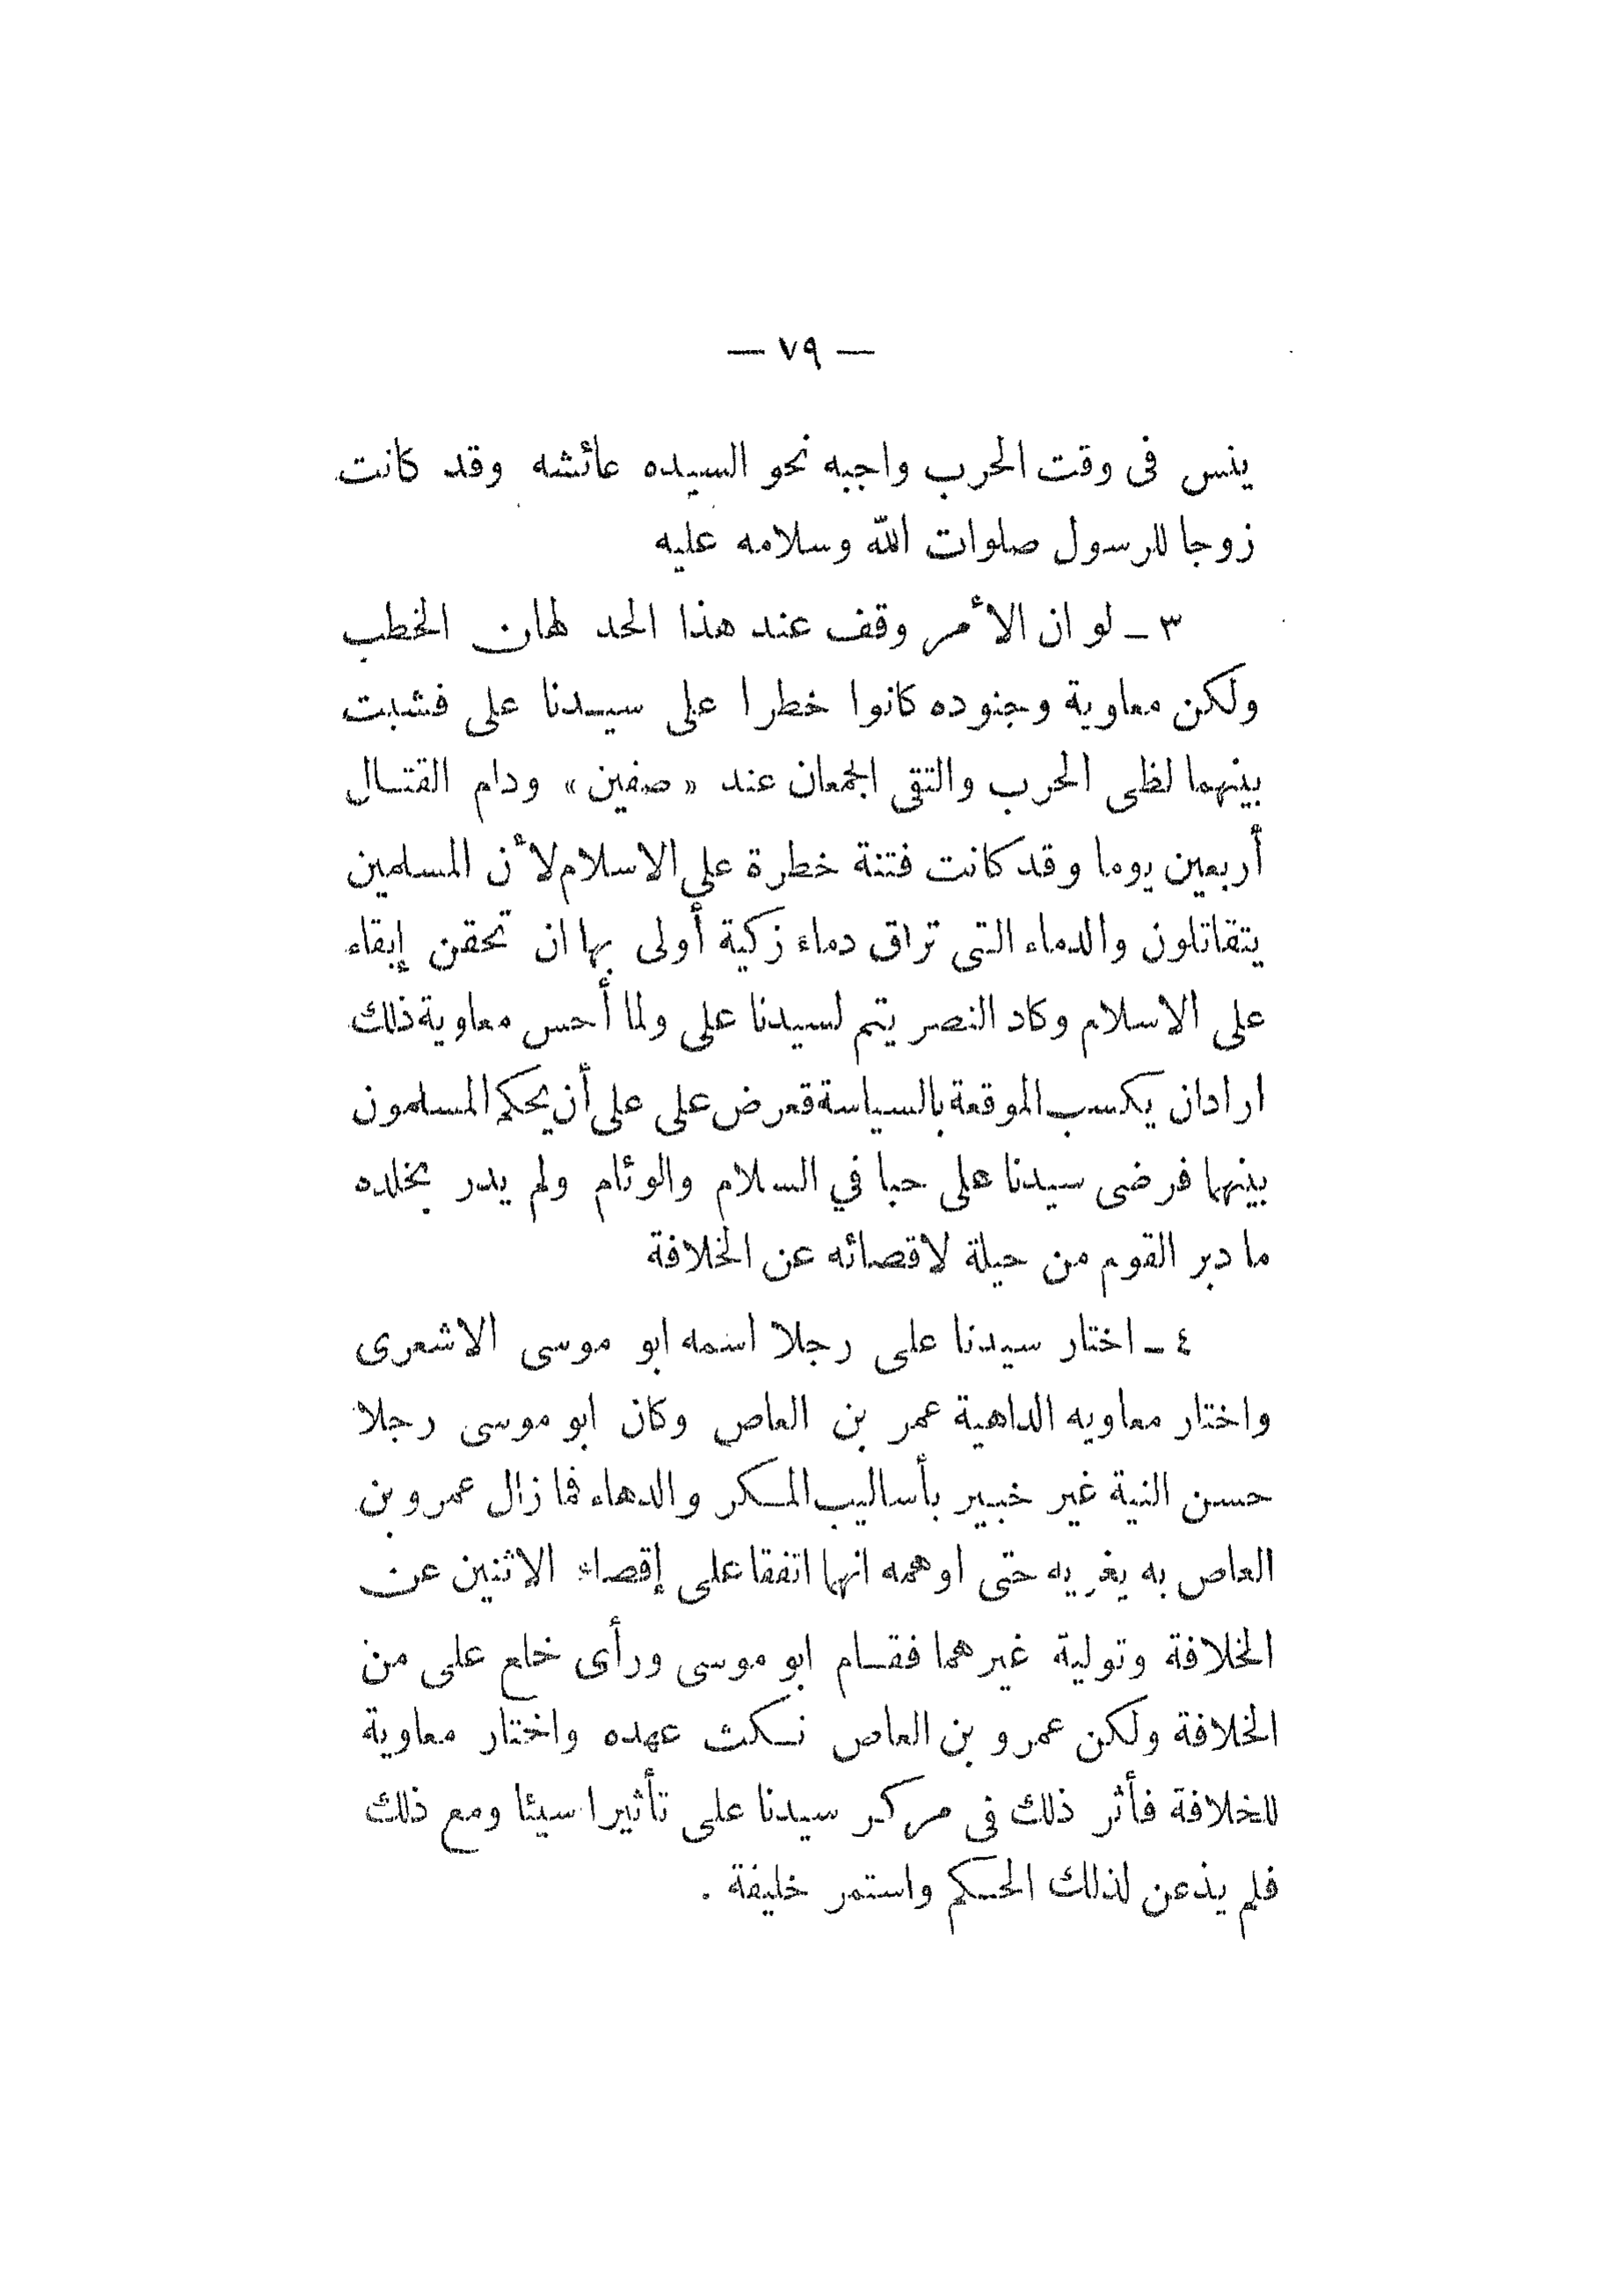 — ٧٩ —
ينس فى وقت الحرب واجبه نحو السيده عائشه وقد كانت
زوجا للرسول صلوات الله وسلامه عليه
٣ – لو ان الأمر وقف عند هذا الحد لهان الخطب
ولكن معاوية وجنوده كانوا خطرا على سيدنا على فشبت
بينهما لظى الحرب والتقى الجمعان عند « صفين » ودام القتال
أربعين يوما وقد كانت فتنة خطرة على الاسلام لأن المسلمين
يتقاتلون والدماء التى تراق دماء زكية أولى بها ان تحقن إبقاء
على الاسلام وكاد النصر يتم لسيدنا على ولما أحس معاوية ذلك
اراد ان يكسب الموقعة بالسياسة قعرض على على أن يحكم المسلمون
بينهما فرضى سيدنا على حبا في السلام والوئام ولم يدر بخلده
ما دبر القوم من حيلة لاقصائه عن الخلافة
٤ – اختار سيدنا على رجلا اسمه ابو موسى الاشعرى
واختار معاويه الداهية عمر بن العاص وكان ابو موسى رجلا
حسن النية غير خبير بأساليب المكر والدهاء فما زال عمرو بن
العاص به يغريه حتى اوهمه انهما اتفقا على إقصاء الاثنين عن
الخلافة وتولية غيرهما فقام ابو موسى ورأى خلع على من
الخلافة ولكن عمرو بن العاص نكث عهده واختار معاوية
للخلافة فأثر ذلك فى مركز سيدنا على تأثيرا سيئا ومع ذلك
فلم يذعن لذلك الحكم واستمر خليفة .